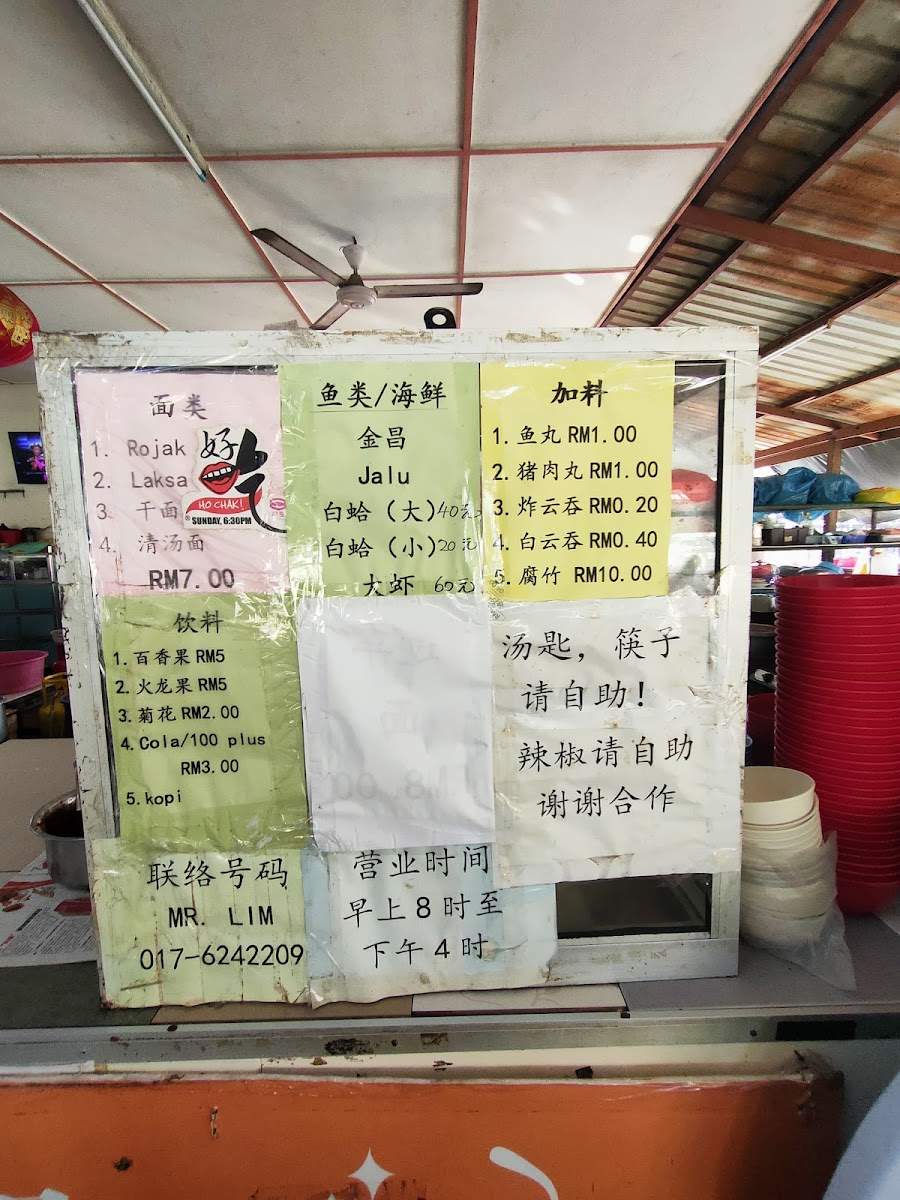 面类
1. Rojak
2. Laksa
3. 干面
4. 清汤面
RM7.00
好吃
HO CHAK!
SUNDAY, 6:30PM
鱼类/海鲜
金昌
Jalu
白蛤（大）40元
白蛤（小）20元
大虾 60元
加料
1. 鱼丸 RM1.00
2. 猪肉丸 RM1.00
3. 炸云吞 RM0.20
4. 白云吞 RM0.40
5. 腐竹 RM10.00
饮料
1. 百香果 RM5
2. 火龙果 RM5
3. 菊花 RM2.00
4. Cola/100 plus
RM3.00
5. kopi
汤匙，筷子
请自助！
辣椒请自助
谢谢合作
联络号码
MR. LIM
017-6242209
营业时间
早上8时至
下午4时